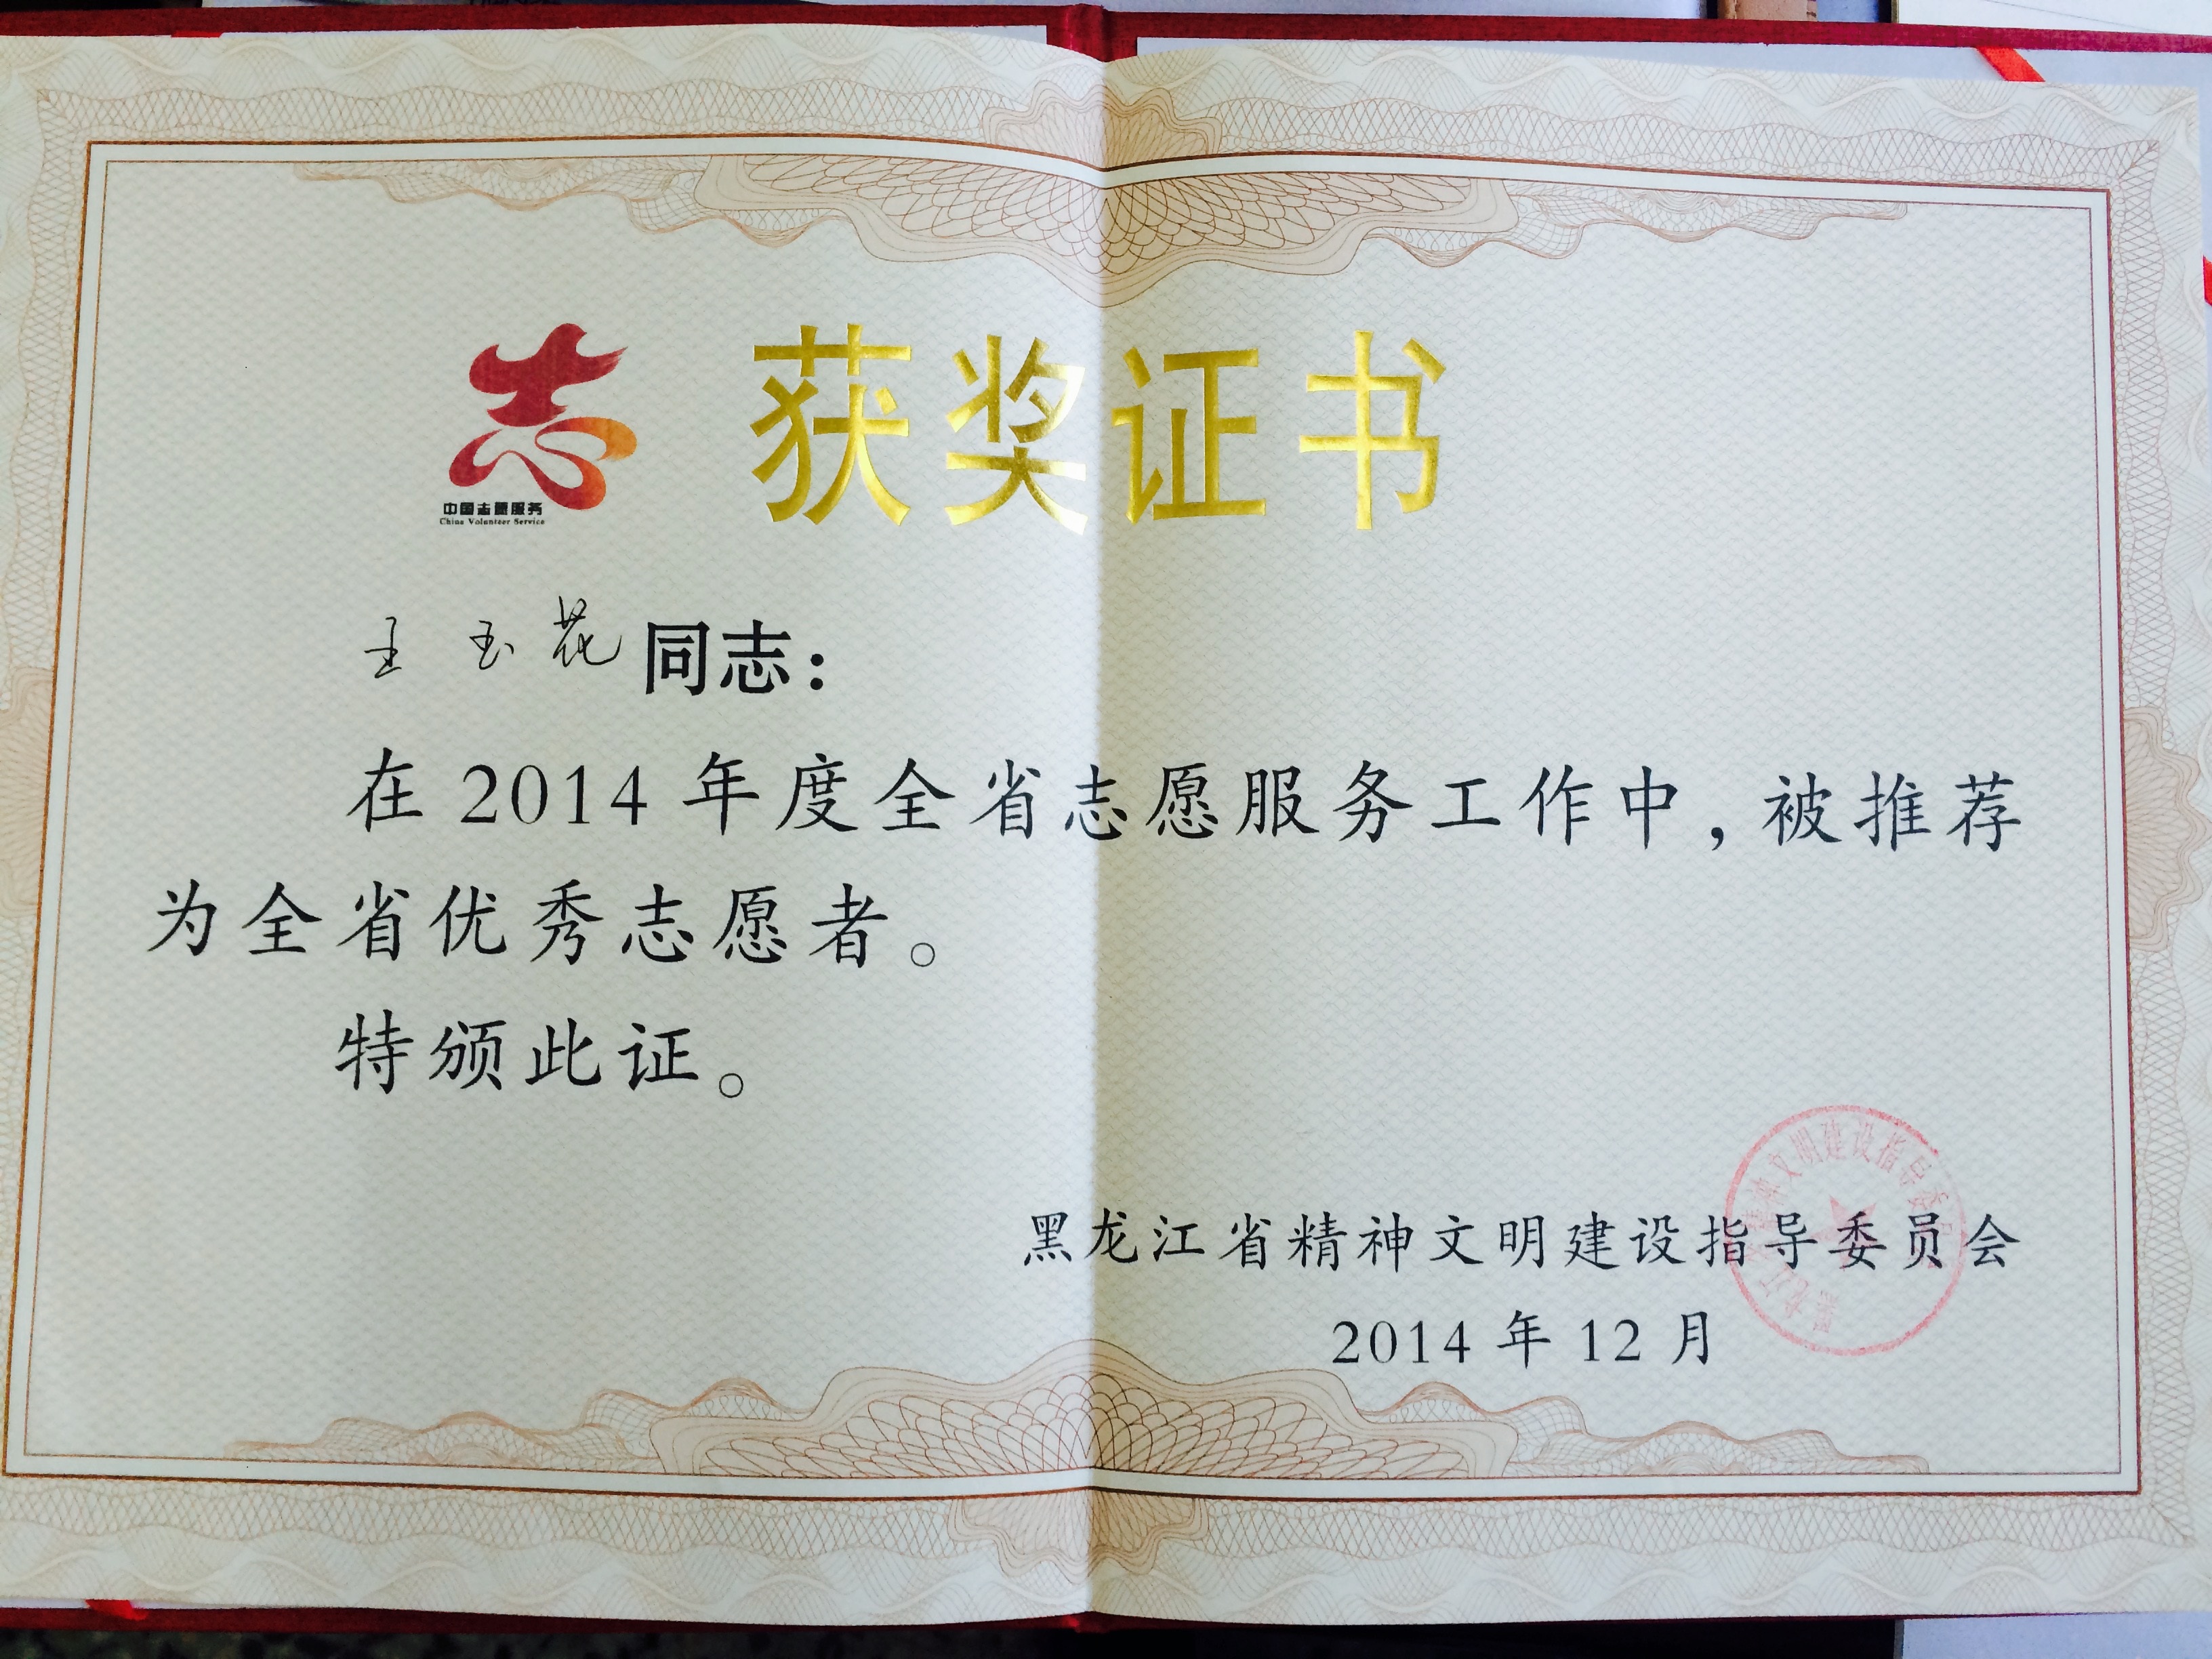 志 获奖证书
中国志愿服务
China Volunteer Service
王玉花同志：
在2014年度全省志愿服务工作中，被推荐
为全省优秀志愿者。
特颁此证。
黑龙江省精神文明建设指导委员会
2014年12月